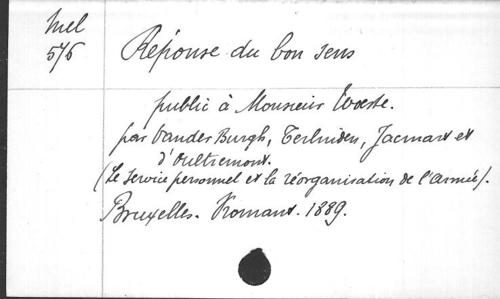 Mel
576
Réponse du bon sens
public à Monsieur Woeste.
par Vander Burgh, Terlinden, Jacmart et
d'Oultremont.
(Le Service personnel et la réorganisation de l'Armée).
Bruxelles. 1889.